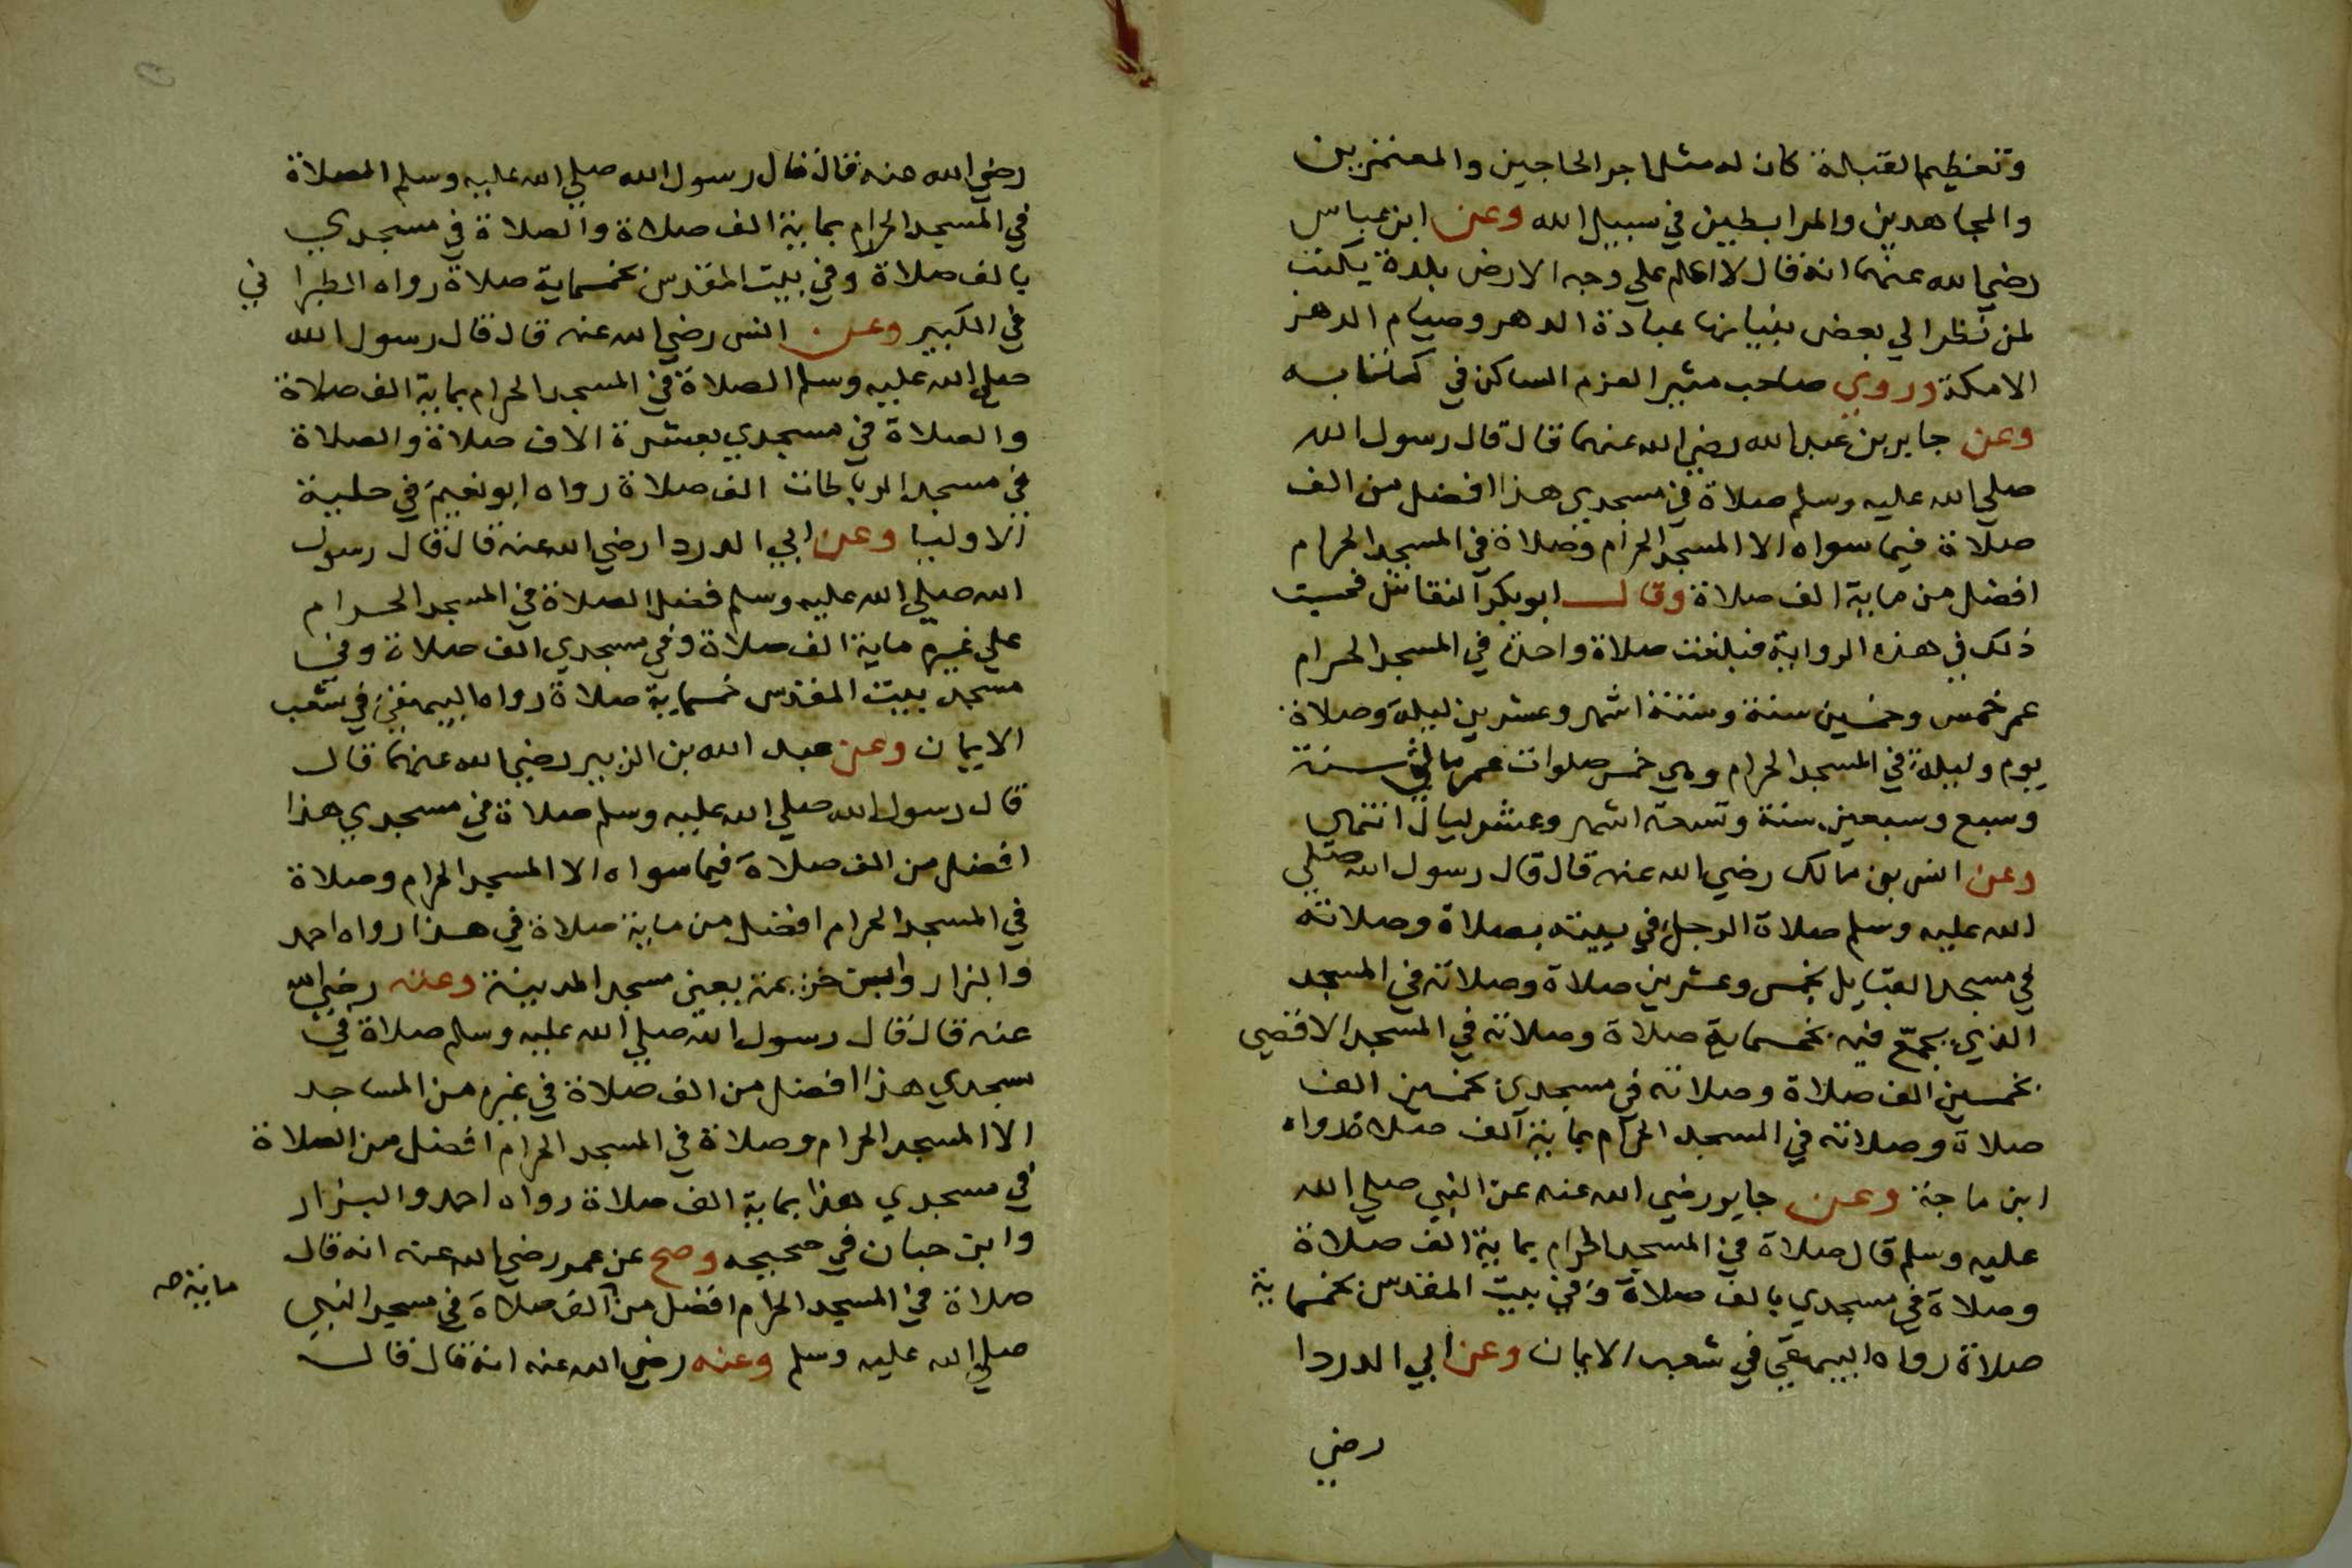 وتعظيم القبلة كان له مثل اجر الحاجين والمعتمرين
والمجاهدين والمرابطين في سبيل الله وعن ابن عباس
رضي الله عنهما انه قال لا اعلم علي وجه الارض بلدة يكتب
لمن نظر الي بعض بنيانها عبادة الدهر وصيام الدهر
الا مكة وروي صاحب مثير العزم الساكن في كتابه
وعن جابر بن عبد الله رضي الله عنهما قال قال رسول الله
صلي الله عليه وسلم صلاة في مسجدي هذا افضل من الف
صلاة فيما سواه الا المسجد الحرام وصلاة في المسجد الحرام
افضل من ماية الف صلاة وقال ابو بكر النقاش فحسبت
ذلك في هذه الرواية فبلغت صلاة واحدة في المسجد الحرام
عمر خمس وخمسين سنة وستة اشهر وعشرين ليلة وصلاة
يوم وليلة في المسجد الحرام وهي خمس صلوات عمر مائتي سنة
وسبع وسبعين سنة وتسعة اشهر وعشر ليال انتهي
وعن انس بن مالك رضي الله عنه قال قال رسول الله صلي
الله عليه وسلم صلاة الرجل في بيته بصلاة وصلاته
في مسجد القبايل بخمس وعشرين صلاة وصلاته في المسجد
الذي يجمع فيه بخمسماية صلاة وصلاته في المسجد الاقصي
بخمسين الف صلاة وصلاته في مسجدي بخمسين الف
صلاة وصلاته في المسجد الحرام بماية الف صلاة رواه
ابن ماجة وعن جابر رضي الله عنه عن النبي صلي الله
عليه وسلم قال صلاة في المسجد الحرام بماية الف صلاة
وصلاة في مسجدي بالف صلاة وفي بيت المقدس بخمسماية
صلاة رواه البيهقي في شعب الايمان وعن ابي الدردا
رضي
رضي الله عنه قال قال رسول الله صلي الله عليه وسلم الصلاة
في المسجد الحرام بماية الف صلاة والصلاة في مسجدي
بالف صلاة وفي بيت المقدس بخمسماية صلاة رواه الطبرا ني
في الكبير وعن انس رضي الله عنه قال قال رسول الله
صلي الله عليه وسلم الصلاة في المسجد الحرام بماية الف صلاة
والصلاة في مسجدي بعشرة الاف صلاة والصلاة
في مسجد الرباطات الف صلاة رواه ابو نعيم في حلية
الاوليا وعن ابي الدردا رضي الله عنه قال قال رسول
الله صلي الله عليه وسلم فضل الصلاة في المسجد الحرام
علي غيره ماية الف صلاة وفي مسجدي الف صلاة وفي
مسجد بيت المقدس خمسماية صلاة رواه البيهقي في شعب
الايمان وعن عبد الله بن الزبير رضي الله عنهما قال
قال رسول الله صلي الله عليه وسلم صلاة في مسجدي هذا
افضل من الف صلاة فيما سواه الا المسجد الحرام وصلاة
في المسجد الحرام افضل من ماية صلاة في هذا رواه احمد
والبزار وابن خزيمة يعني مسجد المدينة وعنه رضي الله
عنه قال قال رسول الله صلي الله عليه وسلم صلاة في
مسجدي هذا افضل من الف صلاة في غيره من المساجد
الا المسجد الحرام وصلاة في المسجد الحرام افضل من الصلاة
في مسجدي هذا بماية الف صلاة رواه احمد والبزار
وابن حبان في صحيحه وصح عن عمر رضي الله عنه انه قال
صلاة في المسجد الحرام افضل من الف صلاة في مسجد النبي
ماية صح
صلي الله عليه وسلم وعنه رضي الله عنه انه قال قال